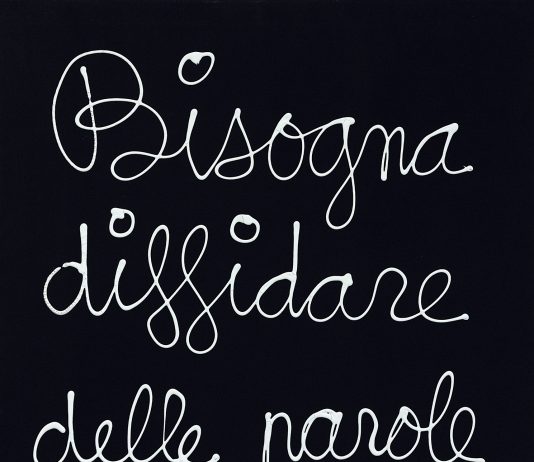 Bisogna
diffidare
delle parole